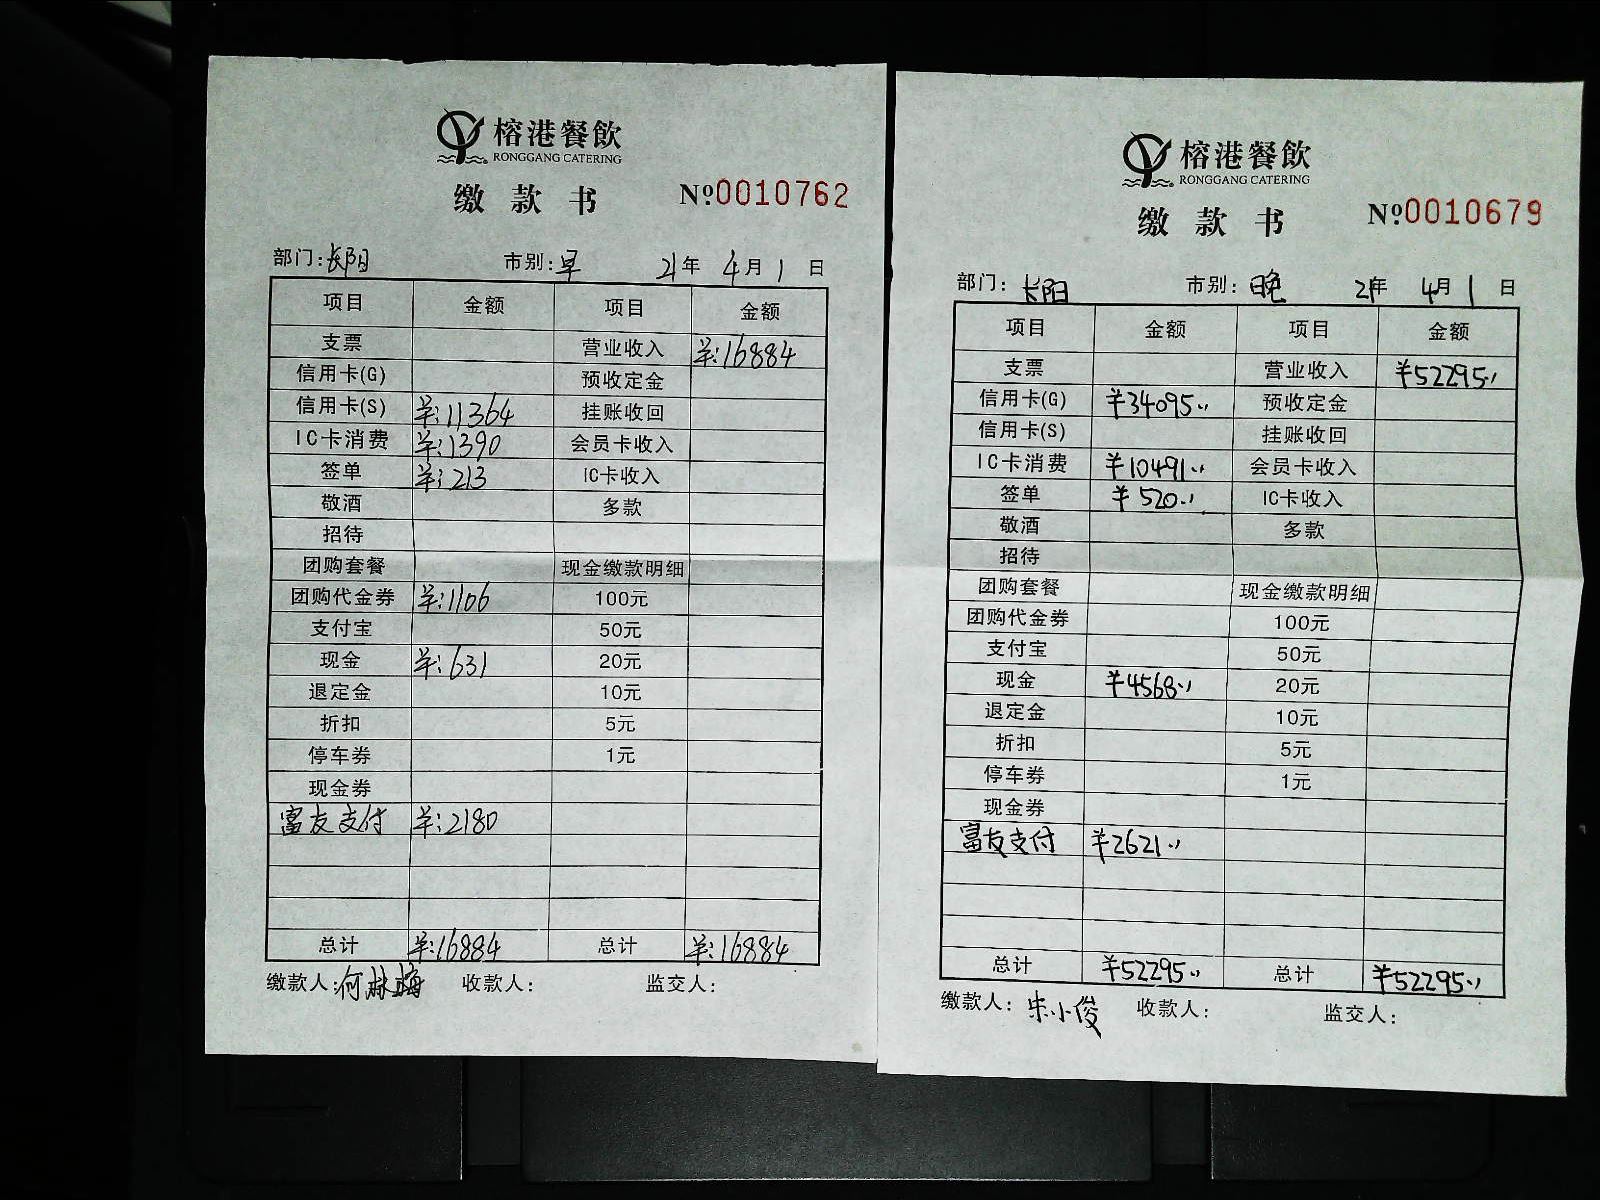 榕港餐飲
RONGGANG CATERING
缴款书 №0010762
部门:长阳 市别:早 21年 4月1日
项目 金额 项目 金额
支票 营业收入 ¥:16884
信用卡(G) 预收定金
信用卡(S) ¥:11364 挂账收回
IC卡消费 ¥:1390 会员卡收入
签单 ¥:213 IC卡收入
敬酒 多款
招待
团购套餐 现金缴款明细
团购代金券 ¥:1106 100元
支付宝 50元
现金 ¥:631 20元
退定金 10元
折扣 5元
停车券 1元
现金券
富友支付 ¥:2180
总计 ¥:16884 总计 ¥:16884
缴款人:何林梅 收款人: 监交人:
榕港餐飲
RONGGANG CATERING
缴款书 №0010679
部门:长阳 市别:晚 21年 4月1日
项目 金额 项目 金额
支票 营业收入 ¥52295.
信用卡(G) ¥34095. 预收定金
信用卡(S) 挂账收回
IC卡消费 ¥10491. 会员卡收入
签单 ¥520. IC卡收入
敬酒 多款
招待
团购套餐 现金缴款明细
团购代金券 100元
支付宝 50元
现金 ¥4568. 20元
退定金 10元
折扣 5元
停车券 1元
现金券
富友支付 ¥2621.
总计 ¥52295. 总计 ¥52295.
缴款人:朱小俊 收款人: 监交人: